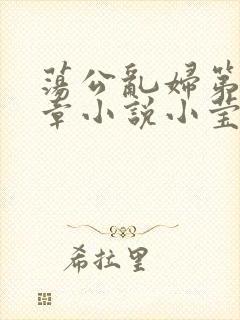 蕩公亂婦第
章小說小莹
希拉里